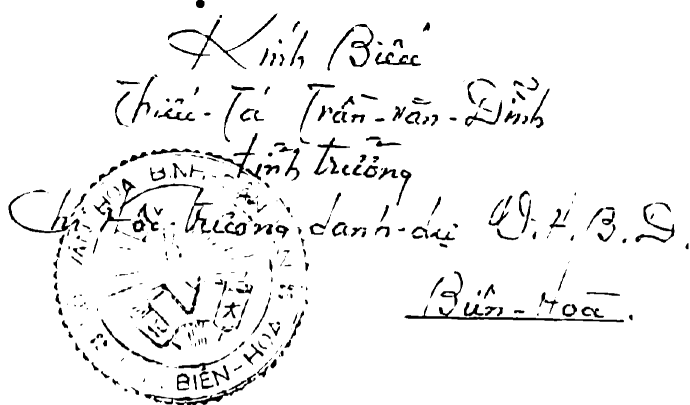 Kính Biếu
Thiếu-Tá Trần-Văn-Dĩnh
tỉnh trưởng
Chi Hội-trưởng danh-dự V.H.B.D.
Biên-Hoà.
HOA BÌNH
BIÊN-HOA